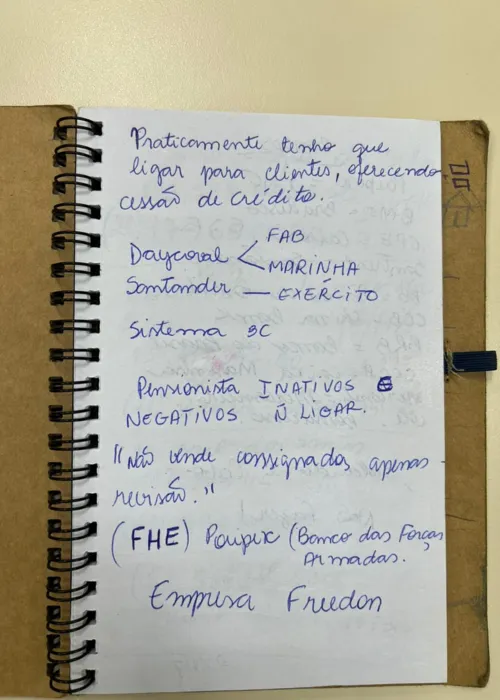 Praticamente tenho que
ligar para clientes, oferecendo
cessão de crédito.
Daycoral < FAB
MARINHA
Santander — EXÉRCITO
Sistema 3C
Pensionista INATIVOS E
NEGATIVOS Ñ LIGAR.
"Não vende consignados, apenas
revisão."
(FHE) Poupex (Banco das Forças
Armadas.
Empresa Freedon